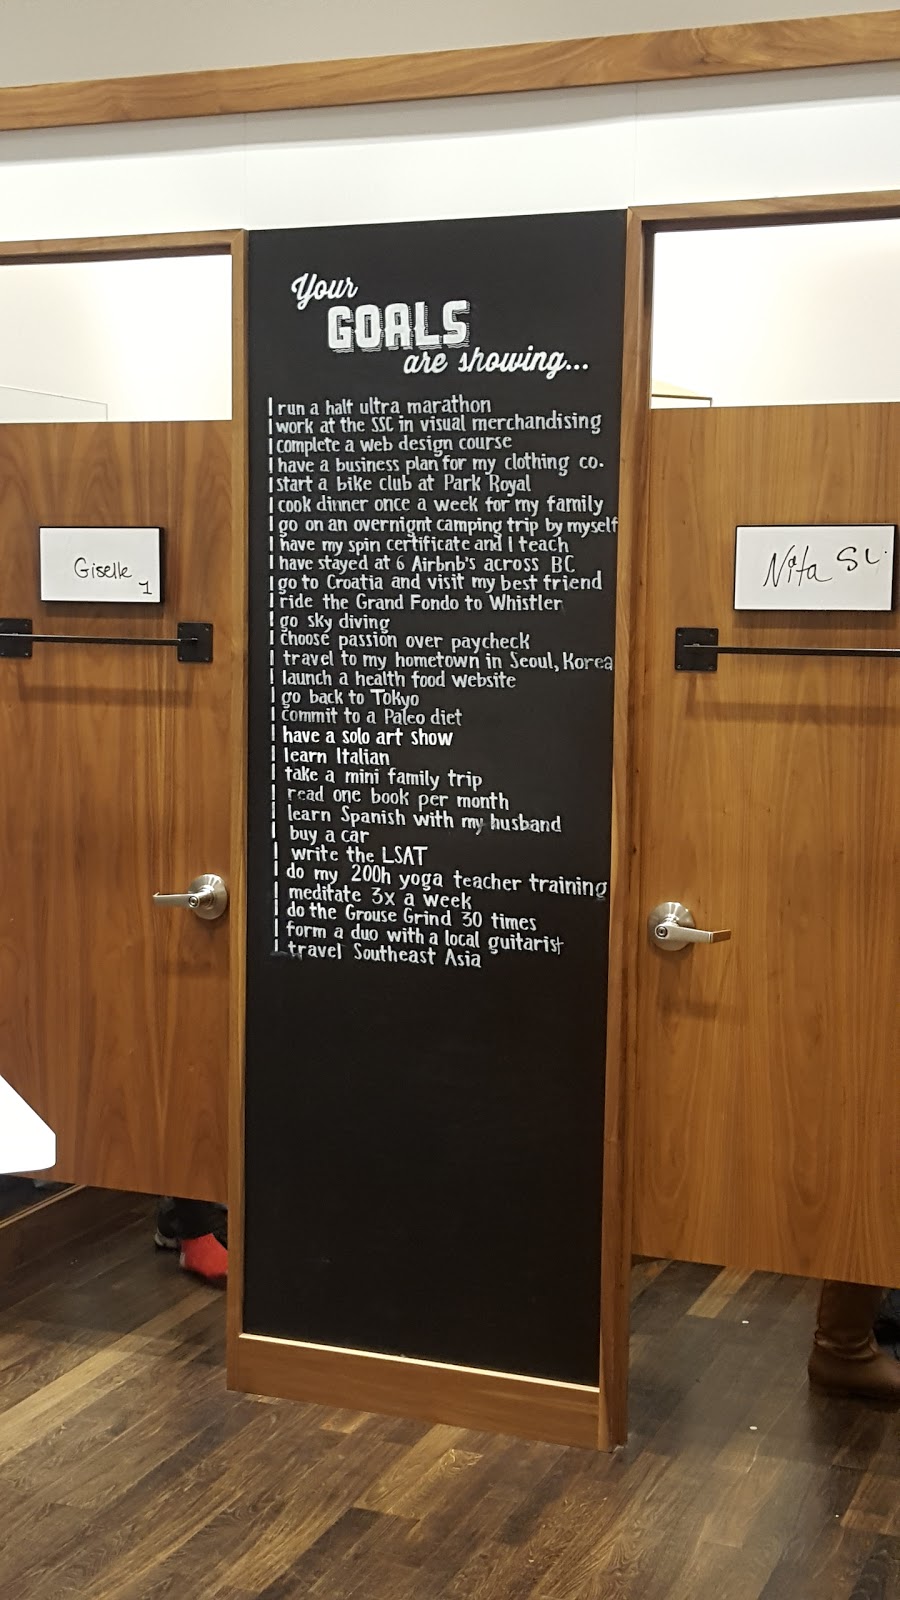 Your
GOALS
are showing...
I run a half ultra marathon
I work at the SSC in visual merchandising
I complete a web design course
I have a business plan for my clothing co.
I start a bike club at Park Royal
I cook dinner once a week for my family
I go on an overnight camping trip by myself
I have my spin certificate and I teach
I have stayed at 6 Airbnb's across BC
I go to Croatia and visit my best friend
I ride the Grand Fondo to Whistler
I go sky diving
I choose passion over paycheck
I travel to my hometown in Seoul, Korea
I launch a health food website
I go back to Tokyo
I commit to a Paleo diet
I have a solo art show
I learn Italian
I take a mini family trip
I read one book per month
I learn Spanish with my husband
I buy a car
I write the LSAT
I do my 200h yoga teacher training
I meditate 3x a week
I do the Grouse Grind 30 times
I form a duo with a local guitarist
I travel Southeast Asia
Giselle
1
Nita SL.